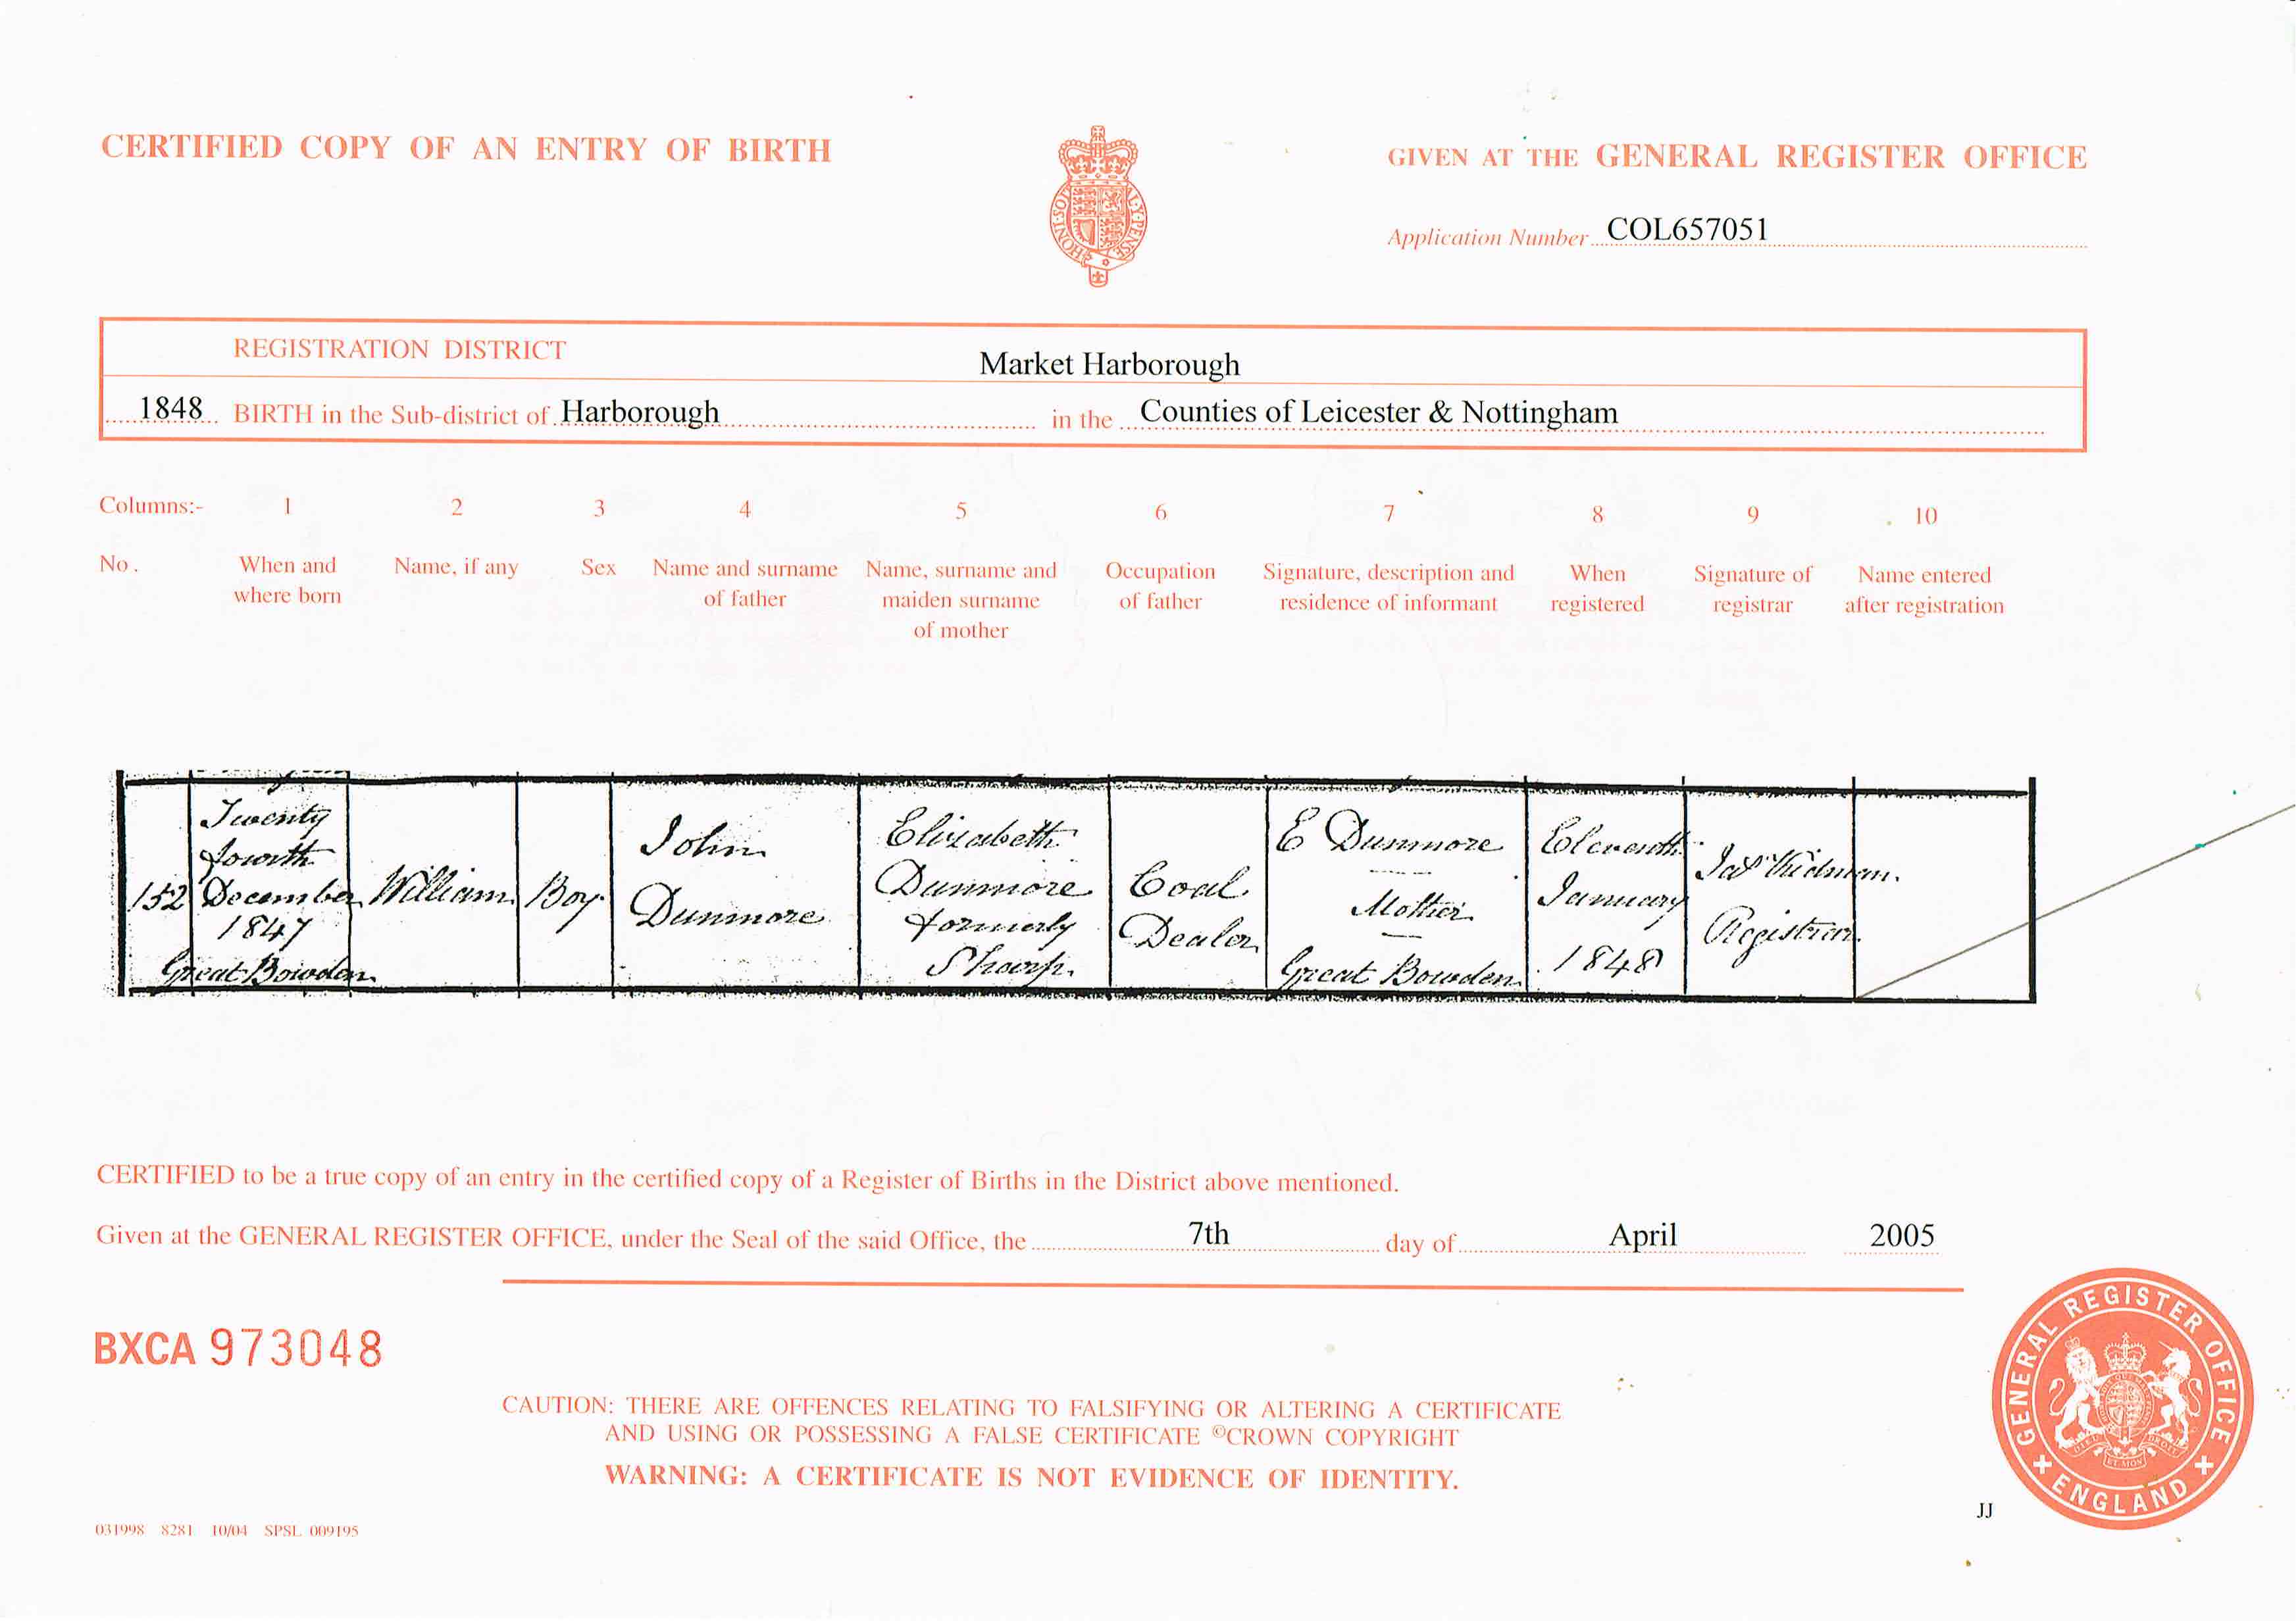 CERTIFIED COPY OF AN ENTRY OF BIRTH
GIVEN AT THE GENERAL REGISTER OFFICE
Application Number COL657051
REGISTRATION DISTRICT
Market Harborough
1848 BIRTH in the Sub-district of Harborough in the Counties of Leicester & Nottingham
Columns:- 1 2 3 4 5 6 7 8 9 10
No. When and where born
Name, if any
Sex
Name and surname of father
Name, surname and maiden surname of mother
Occupation of father
Signature, description and residence of informant
When registered
Signature of registrar
Name entered after registration
152
Twenty
fourth
December
1847
Great Bowden
William
Boy
John
Dunmore
Elizabeth
Dunmore
formerly
Sharp.
Coal
Dealer
E Dunmore
Mother
Great Bowden
Eleventh
January
1848
Registrar.
CERTIFIED to be a true copy of an entry in the certified copy of a Register of Births in the District above mentioned.
Given at the GENERAL REGISTER OFFICE, under the Seal of the said Office, the 7th day of April 2005
BXCA 973048
CAUTION: THERE ARE OFFENCES RELATING TO FALSIFYING OR ALTERING A CERTIFICATE
AND USING OR POSSESSING A FALSE CERTIFICATE ©CROWN COPYRIGHT
WARNING: A CERTIFICATE IS NOT EVIDENCE OF IDENTITY.
GENERAL REGISTER OFFICE
ENGLAND
JJ
031998 8281 10/04 SPSL 009195